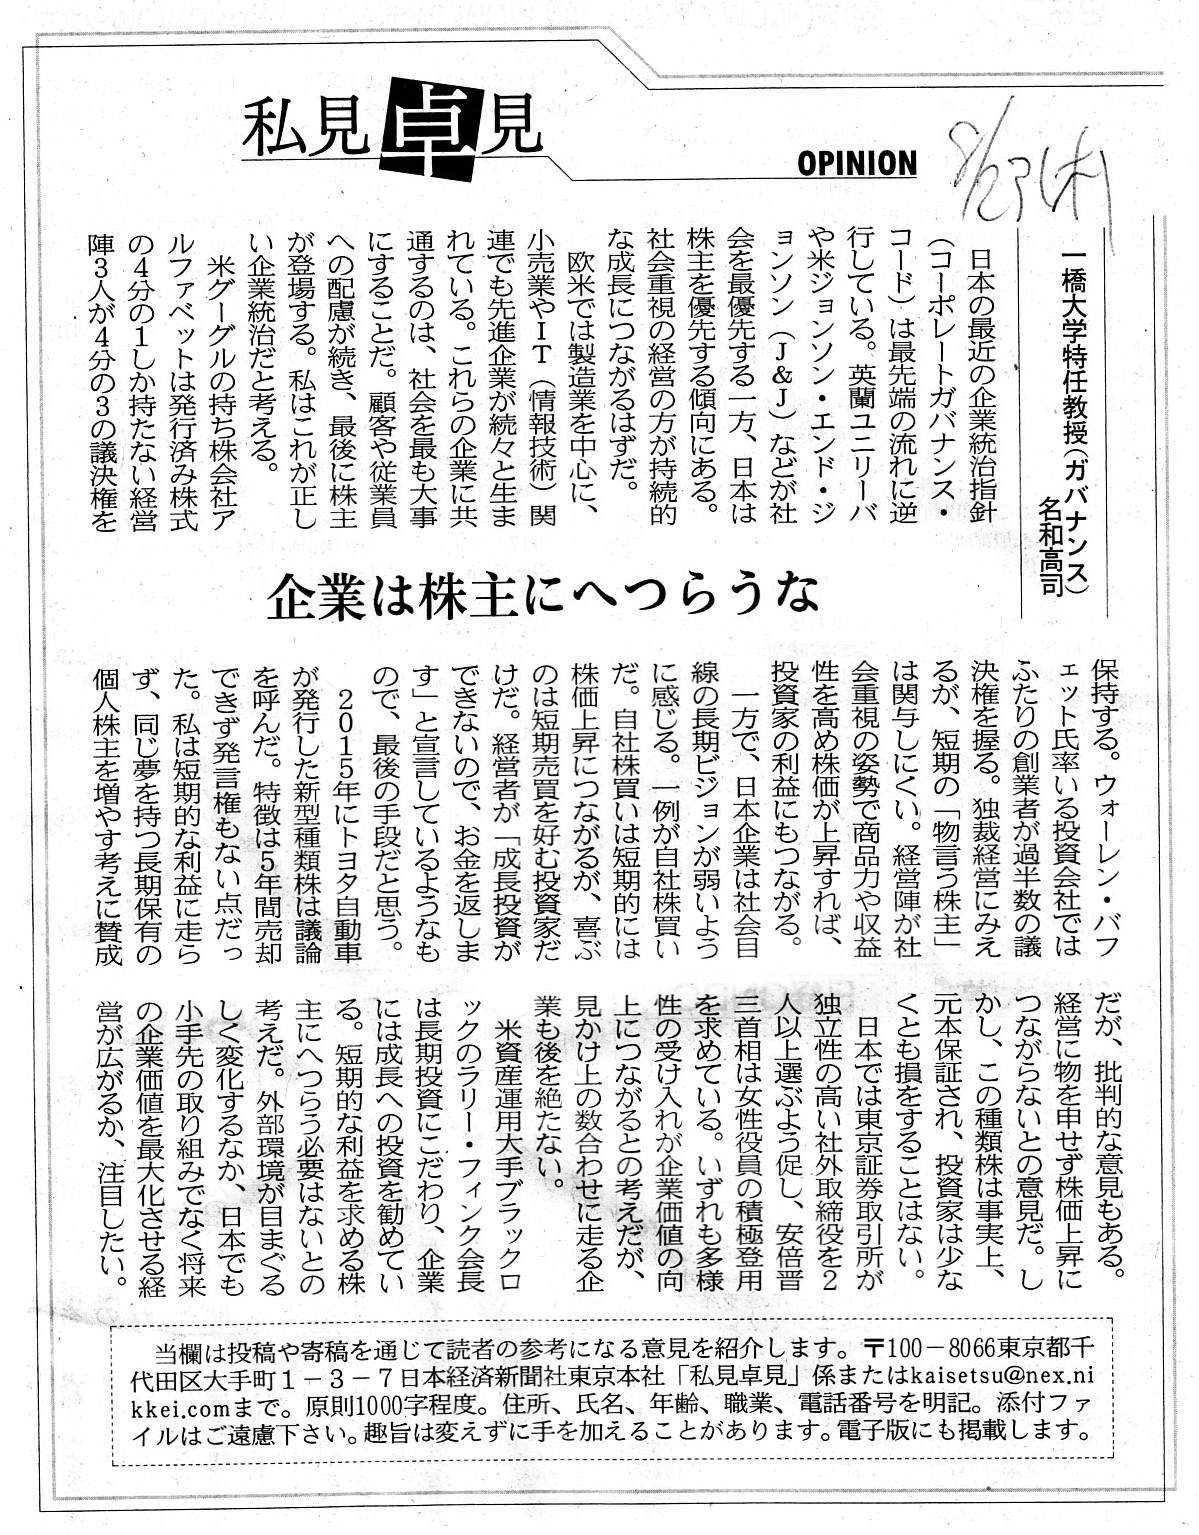 私見卓見
OPINION
8/23(木)
一橋大学特任教授(ガバナンス)
名和高司
日本の最近の企業統治指針
(コーポレートガバナンス・
コード)は最先端の流れに逆
行している。英蘭ユニリーバ
や米ジョンソン・エンド・ジ
ョンソン(J&J)などが社
会を最優先する一方、日本は
株主を優先する傾向にある。
社会重視の経営の方が持続的
な成長につながるはずだ。
欧米では製造業を中心に、
小売業やIT(情報技術)関
連でも先進企業が続々と生ま
れている。これらの企業に共
通するのは、社会を最も大事
にすることだ。顧客や従業員
への配慮が続き、最後に株主
が登場する。私はこれが正し
い企業統治だと考える。
米グーグルの持ち株会社ア
ルファベットは発行済み株式
の4分の1しか持たない経営
陣3人が4分の3の議決権を
企業は株主にへつらうな
保持する。ウォーレン・バフ
ェット氏率いる投資会社では
ふたりの創業者が過半数の議
決権を握る。独裁経営にみえ
るが、短期の「物言う株主」
は関与しにくい。経営陣が社
会重視の姿勢で商品力や収益
性を高め株価が上昇すれば、
投資家の利益にもつながる。
一方で、日本企業は社会目
線の長期ビジョンが弱いよう
に感じる。一例が自社株買い
だ。自社株買いは短期的には
株価上昇につながるが、喜ぶ
のは短期売買を好む投資家だ
けだ。経営者が「成長投資が
できないので、お金を返しま
す」と宣言しているようなも
ので、最後の手段だと思う。
2015年にトヨタ自動車
が発行した新型種類株は議論
を呼んだ。特徴は5年間売却
できず発言権もない点だっ
た。私は短期的な利益に走ら
ず、同じ夢を持つ長期保有の
個人株主を増やす考えに賛成
だが、批判的な意見もある。
経営に物を申せず株価上昇に
つながらないとの意見だ。し
かし、この種類株は事実上、
元本保証され、投資家は少な
くとも損をすることはない。
日本では東京証券取引所が
独立性の高い社外取締役を2
人以上選ぶよう促し、安倍晋
三首相は女性役員の積極登用
を求めている。いずれも多様
性の受け入れが企業価値の向
上につながるとの考えだが、
見かけ上の数合わせに走る企
業も後を絶たない。
米資産運用大手ブラックロ
ックのラリー・フィンク会長
は長期投資にこだわり、企業
には成長への投資を勧めてい
る。短期的な利益を求める株
主にへつらう必要はないとの
考えだ。外部環境が目まぐる
しく変化するなか、日本でも
小手先の取り組みでなく将来
の企業価値を最大化させる経
営が広がるか、注目したい。
当欄は投稿や寄稿を通じて読者の参考になる意見を紹介します。〒100-8066東京都千
代田区大手町1-3-7日本経済新聞社東京本社「私見卓見」係またはkaisetsu@nex.ni
kkei.comまで。原則1000字程度。住所、氏名、年齢、職業、電話番号を明記。添付ファ
イルはご遠慮下さい。趣旨は変えずに手を加えることがあります。電子版にも掲載します。